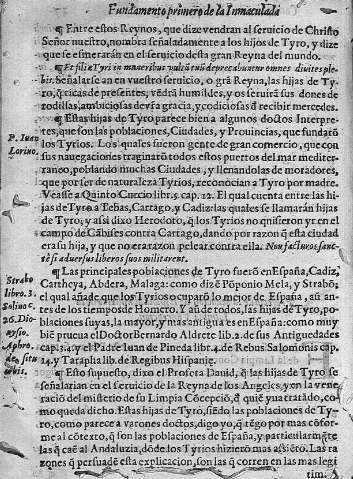 Fundamento primero de la Inmaculada
¶ Entre estos Reynos, que dize vendran al seruicio de Christo
Señor nuestro, nombra señaladamente a los hijos de Tyro, y dize
que se esmeraràn en el seruicio desta gran Reyna del mundo.
¶ Et filiæ Tyri in muneribus vultũ tuũ deprecabuntur omnes diuites ple-
bis. Señalarse an en vuestro seruicio, o grã Reyna, las hijas de
Tyro, q̃ ricas de presentes, vẽdrà humildes, y os seruirà sus dones de
rodillas, ambiciosas de vr̃a gracia, y codiciosas d̃ recibir mercedes.
¶ Estas hijas de Tyro parece bien a algunos doctos Interpre-
tes, que son las poblaciones, Ciudades, y Prouincias, que fundarõ
los Tyrios. Los quales fueron gente de gran comercio, que con
sus nauegaciones traginarõ todos estos puertos del mar mediter-
raneo, poblando muchas Ciudades, y llenandolas de moradores,
que por ser de naturaleza Tyrios, reconocian a Tyro por madre.
Veàsse a Quinto Curcio libr. 5. cap. 12. El qual cuenta entre las hi-
jas de Tyro a Tebas, Cartago, y Cadiz: las quales se llamaràn hijas
de Tyro; y assi dixo Herodoro, q̃ los Tyrios no quisieron yr en el
campo de Cãbises contra Cartago, dando por razõ q̃ esta ciudad
era su hija, y que no era razon pelear contra ella. Non facturos sanc-
tè si aduersus liberos suos militarent.
P. Iuan
Lorino.
¶ Las principales poblaciones de Tyro fuerõ en España, Cadiz,
Cartheya, Abdera, Malaga: como dizẽ Põponio Mela, y Strabõ,
el qual añade que los Tyrios ocuparõ lo mejor de España, aũ an-
tes de los tiempos de Homero. Y aũ de todos, las hijas d̃ Tyro, po-
blaciones suyas, la mayor, y mas antigua es en España: como muy
biẽ prueua el Doctor Bernardo Aldrete lib. 2. de sus Antiguedades
cap. 3. 4. y el Padre Iuan de Pineda lib. 4. de Rebus Salomonis cap.
14. y Tarapha lib. de Regibus Hispaniæ.
Strabo
libro. 3.
Solino c.
26. Dio-
nysio.
Aphro-
de, situ
orbis.
¶ Esto supuesto, dixo el Profeta Dauid, q̃ las hijas de Tyro se
señalarian en el seruicio de la Reyna de los Angeles, y en la vene-
raciõ del misterio de su Limpia Cõcepciõ, d̃ quiẽ yua tratãdo, co-
mo queda dicho. Estas hijas de Tyro, siẽdo las poblaciones de Ty-
ro, como parece a varones doctos, digo yo, q̃ rẽgo por mas cõfor-
me al cõtexto, q̃ son las poblaciones de España, y particularmẽte
las q̃ caẽ al Andaluzia, dõde los Tyrios hizierõ mas assiẽto. Las ra
zones q̃ persuadẽ esta explicacion, son las q̃ corren en las mas legi
tim.